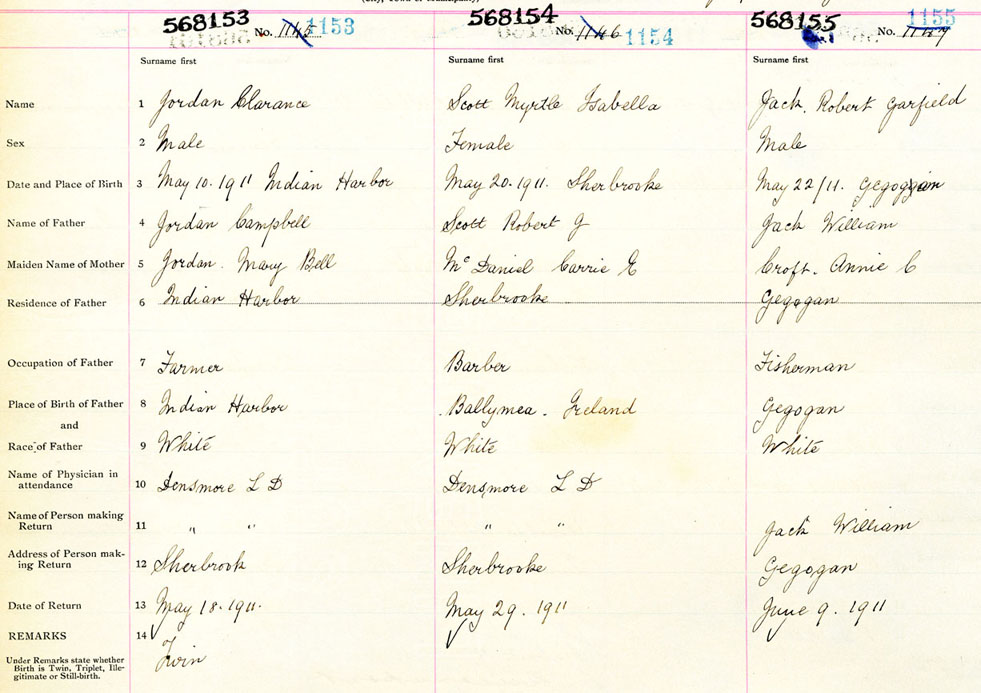 568153 568154 568155
No. 1145 1153 No. 1146 1154 No. 1147 1155
Surname first Surname first Surname first
Name 1 Jordan Clarance Scott Myrtle Isabella Jack. Robert Garfield
Sex 2 Male Female Male
Date and Place of Birth 3 May 10. 1911 Indian Harbor May 20. 1911. Sherbrooke May 22/11. Gegoggan
Name of Father 4 Jordan Campbell Scott Robert G Jack William
Maiden Name of Mother 5 Jordan. Mary Bell Mc Daniel Carrie E Croft. Annie C
Residence of Father 6 Indian Harbor Sherbrooke Gegogan
Occupation of Father 7 Farmer Barber Fisherman
Place of Birth of Father 8 Indian Harbor Ballymea. Ireland Gegogan
and
Race of Father 9 White White White
Name of Physician in
attendance 10 Densmore L D Densmore L D
Name of Person making
Return 11 " " " " Jack William
Address of Person mak-
ing Return 12 Sherbrook Sherbrooke Gegogan
Date of Return 13 May 18. 1911. May 29. 1911 June 9. 1911
REMARKS 14
Under Remarks state whether
Birth is Twin, Triplet, Ille-
gitimate or Still-birth. Twin